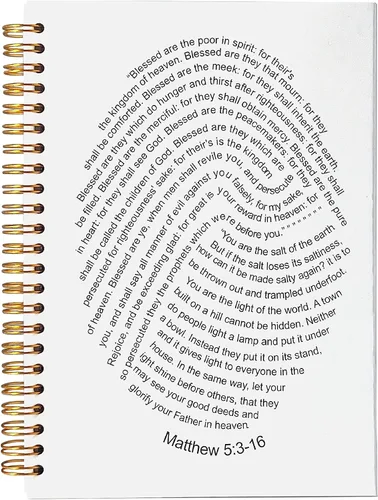 "Blessed are the poor in spirit: for their's
the kingdom of heaven. Blessed are they that mourn: for they
shall be comforted. Blessed are the meek: for they shall inherit the earth.
Blessed are they which do hunger and thirst after righteousness: for they shall
be filled. Blessed are the merciful: for they shall obtain mercy. Blessed are the pure
in heart: for they shall see God. Blessed are the peacemakers: for they
shall be called the children of God. Blessed are they which are
persecuted for righteousness' sake: for their's is the kingdom
of heaven. Blessed are ye, when men shall revile you, and persecute
you, and shall say all manner of evil against you falsely, for my sake,
Rejoice, and be exceeding glad: for great is your reward in heaven: for
so persecuted they the prophets which were before you." " " " " " " "
"You are the salt of the earth
But if the salt loses its saltiness,
how can it be made salty again? it is to
be thrown out and trampled underfoot.
You are the light of the world. A town
built on a hill cannot be hidden. Neither
do people light a lamp and put it under
a bowl. Instead they put it on its stand,
and it gives light to everyone in the
house. In the same way, let your
light shine before others, that they
may see your good deeds and
glorify your Father in heaven.
Matthew 5:3-16